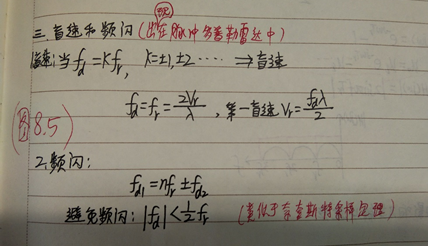 三、盲速和频闪(出现在脉冲多普勒雷达中)
盲速:当fd=Kfr, K=±1,±2…… ⇒盲速
fd=fr=2Vr/λ,第一盲速Vr=fdλ/2
(图8.5)
2.频闪:
fd1=nfr±fd2
避免频闪:|fd|<1/2fr (类似于奈奎斯特采样定理)